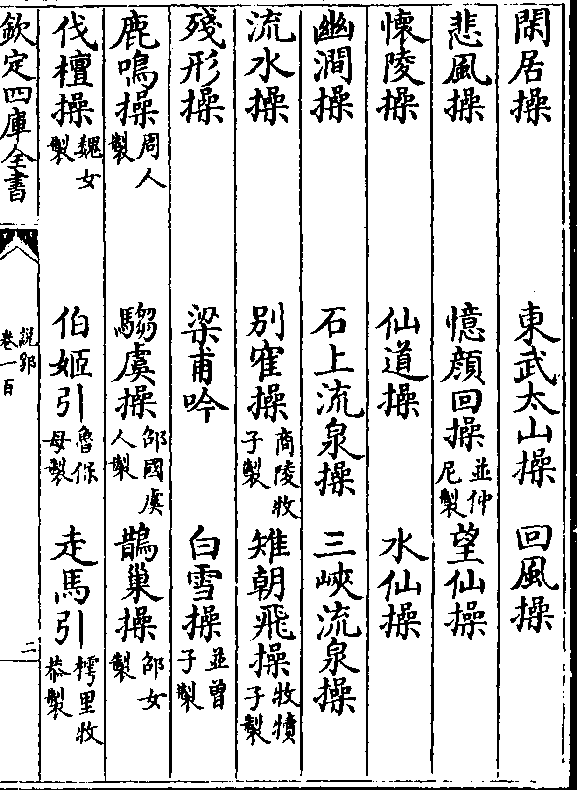 閑居操 東武太山操 回風操
悲風操 憶顔回操並仲尼製 望仙操
懐陵操 仙道操 水仙操
幽澗操 石上流泉操 三峽流泉操
流水操 別寉操商陵牧子製 雉朝飛操牧犢子製
殘形操 梁甫吟 白雪操並曾子製
鹿鳴操周人製 騶虞操邵國虞人製 鵲巢操邵女製
伐檀操魏女製 伯姬引魯保母製 走馬引樗里牧恭製
欽定四庫全書 說郛卷一百 二